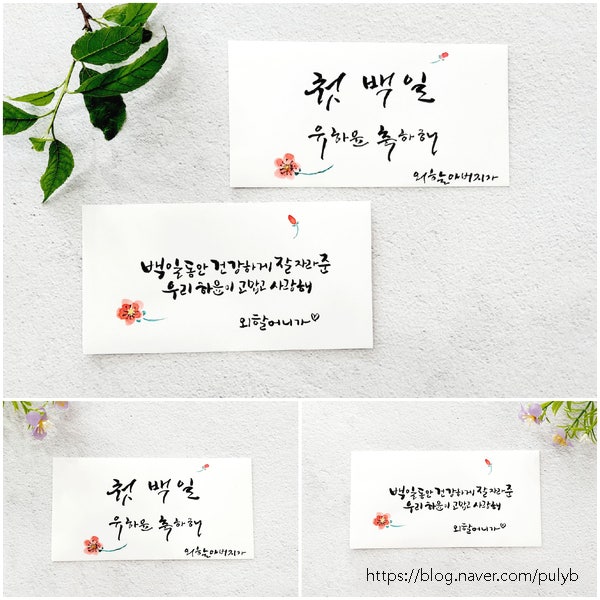 첫 백일
유하윤 축하해
외할아버지가
백일동안 건강하게 잘 자라준
우리 하윤이 고맙고 사랑해
외할머니가♡
첫 백일
유하윤 축하해
외할아버지가
백일동안 건강하게 잘 자라준
우리 하윤이 고맙고 사랑해
외할머니가♡
https://blog.naver.com/pulyb